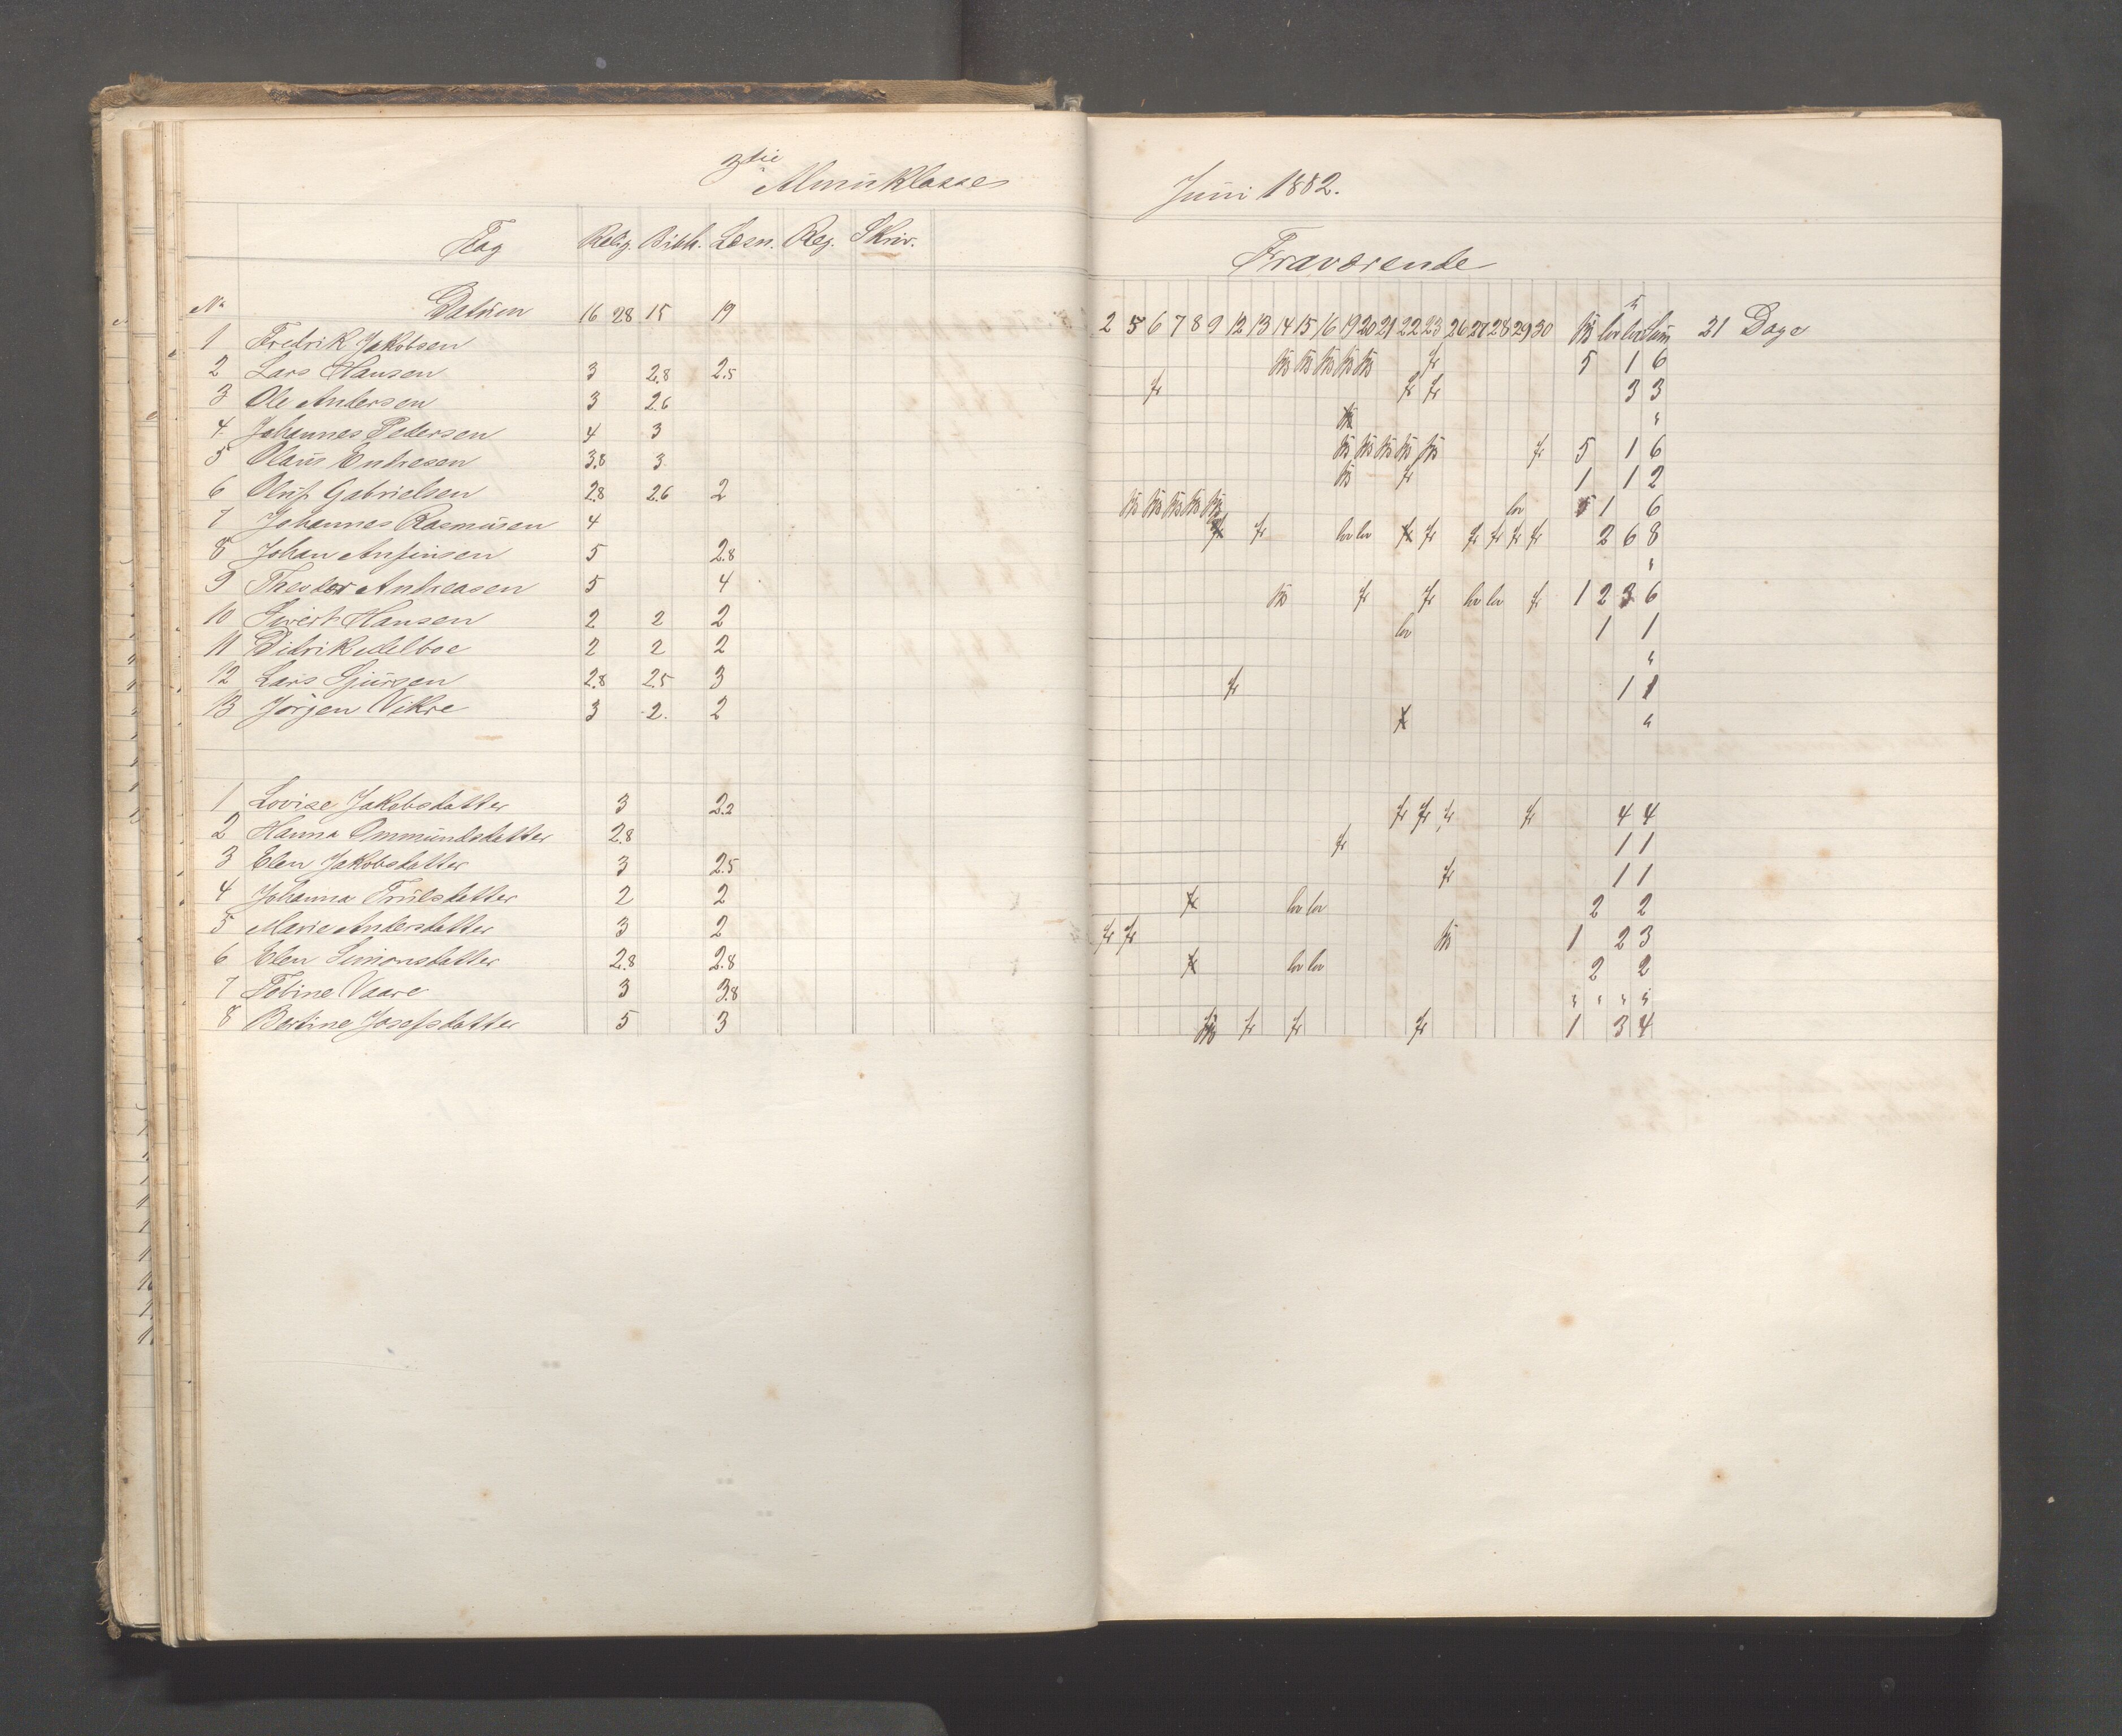 3die Almuklasse
Fag Relig. Bibh. Læsn. Reg. Skriv.
No Datum 16 28 15 19
1 Fredrik Jakobsen
2 Lars Hansen 3 2.8 2.5
3 Ole Andersen 3 2.6
4 Johannes Pedersen 4 3
5 Olaus Endresen 3.8 3
6 Oluf Gabrielsen 2.8 2.6 2
7 Johannes Rasmussen 4
8 Johan Anfinsen 5 2.8
9 Theodor Andreasen 5 4
10 Sivert Hansen 2 2 2
11 Didrik Melboe 2 2 2
12 Lars Sjursen 2.8 2.5 3
13 Jørgen Vikre 3 2. 2
1 Lovise Jakobsdatter 3 2.2
2 Hanna Ommundsdatter 2.8
3 Elen Jakobsdatter 3 2.5
4 Johanna Trulsdatter 2 2
5 Marie Andersdatter 3 2
6 Elen Simonsdatter 2.8 2.8
7 Tobine Vaare 3 3.8
8 Bertine Josefsdatter 5 3
Juni 1882.
Fraværende
2 5 6 7 8 9 12 13 14 15 16 19 20 21 22 23 26 27 28 29 30 lov Sum 21 Dage
fr 5 1 6
fr fr fr 3 3
"
fr 5 1 6
fr 1 1 2
lov 5 1 6
fr lov lov fr fr fr fr fr 2 6 8
"
fr fr lov lov fr 1 2 3 6
lov 1 1
"
fr 1 1
"
fr fr fr fr 4 4
fr 1 1
fr 1 1
lov lov 2 2
fr fr 1 2 3
lov lov 2 2
" " " "
fr fr fr 1 3 4